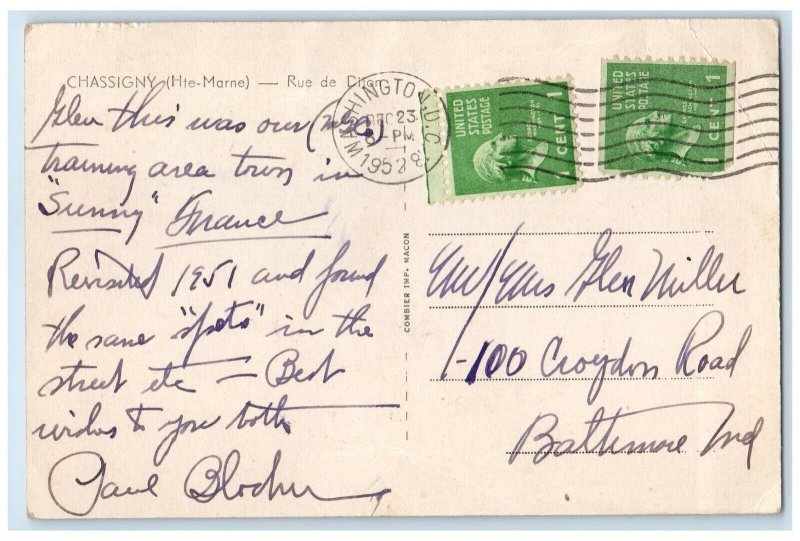 CHASSIGNY (Hte-Marne) — Rue de Dijon
Glen this was our
training area town in
"Sunny" France
Revisited 1951 and found
the same "spots" in the
street etc — Best
wishes to you both
Paul Blocher
WASHINGTON, D.C.
DEC 23
PM
1952
UNITED STATES POSTAGE
1 CENT 1
UNITED STATES POSTAGE
1 CENT 1
COMBIER IMP. MACON
Mr/Mrs Glen Miller
100 Croydon Road
Baltimore Md